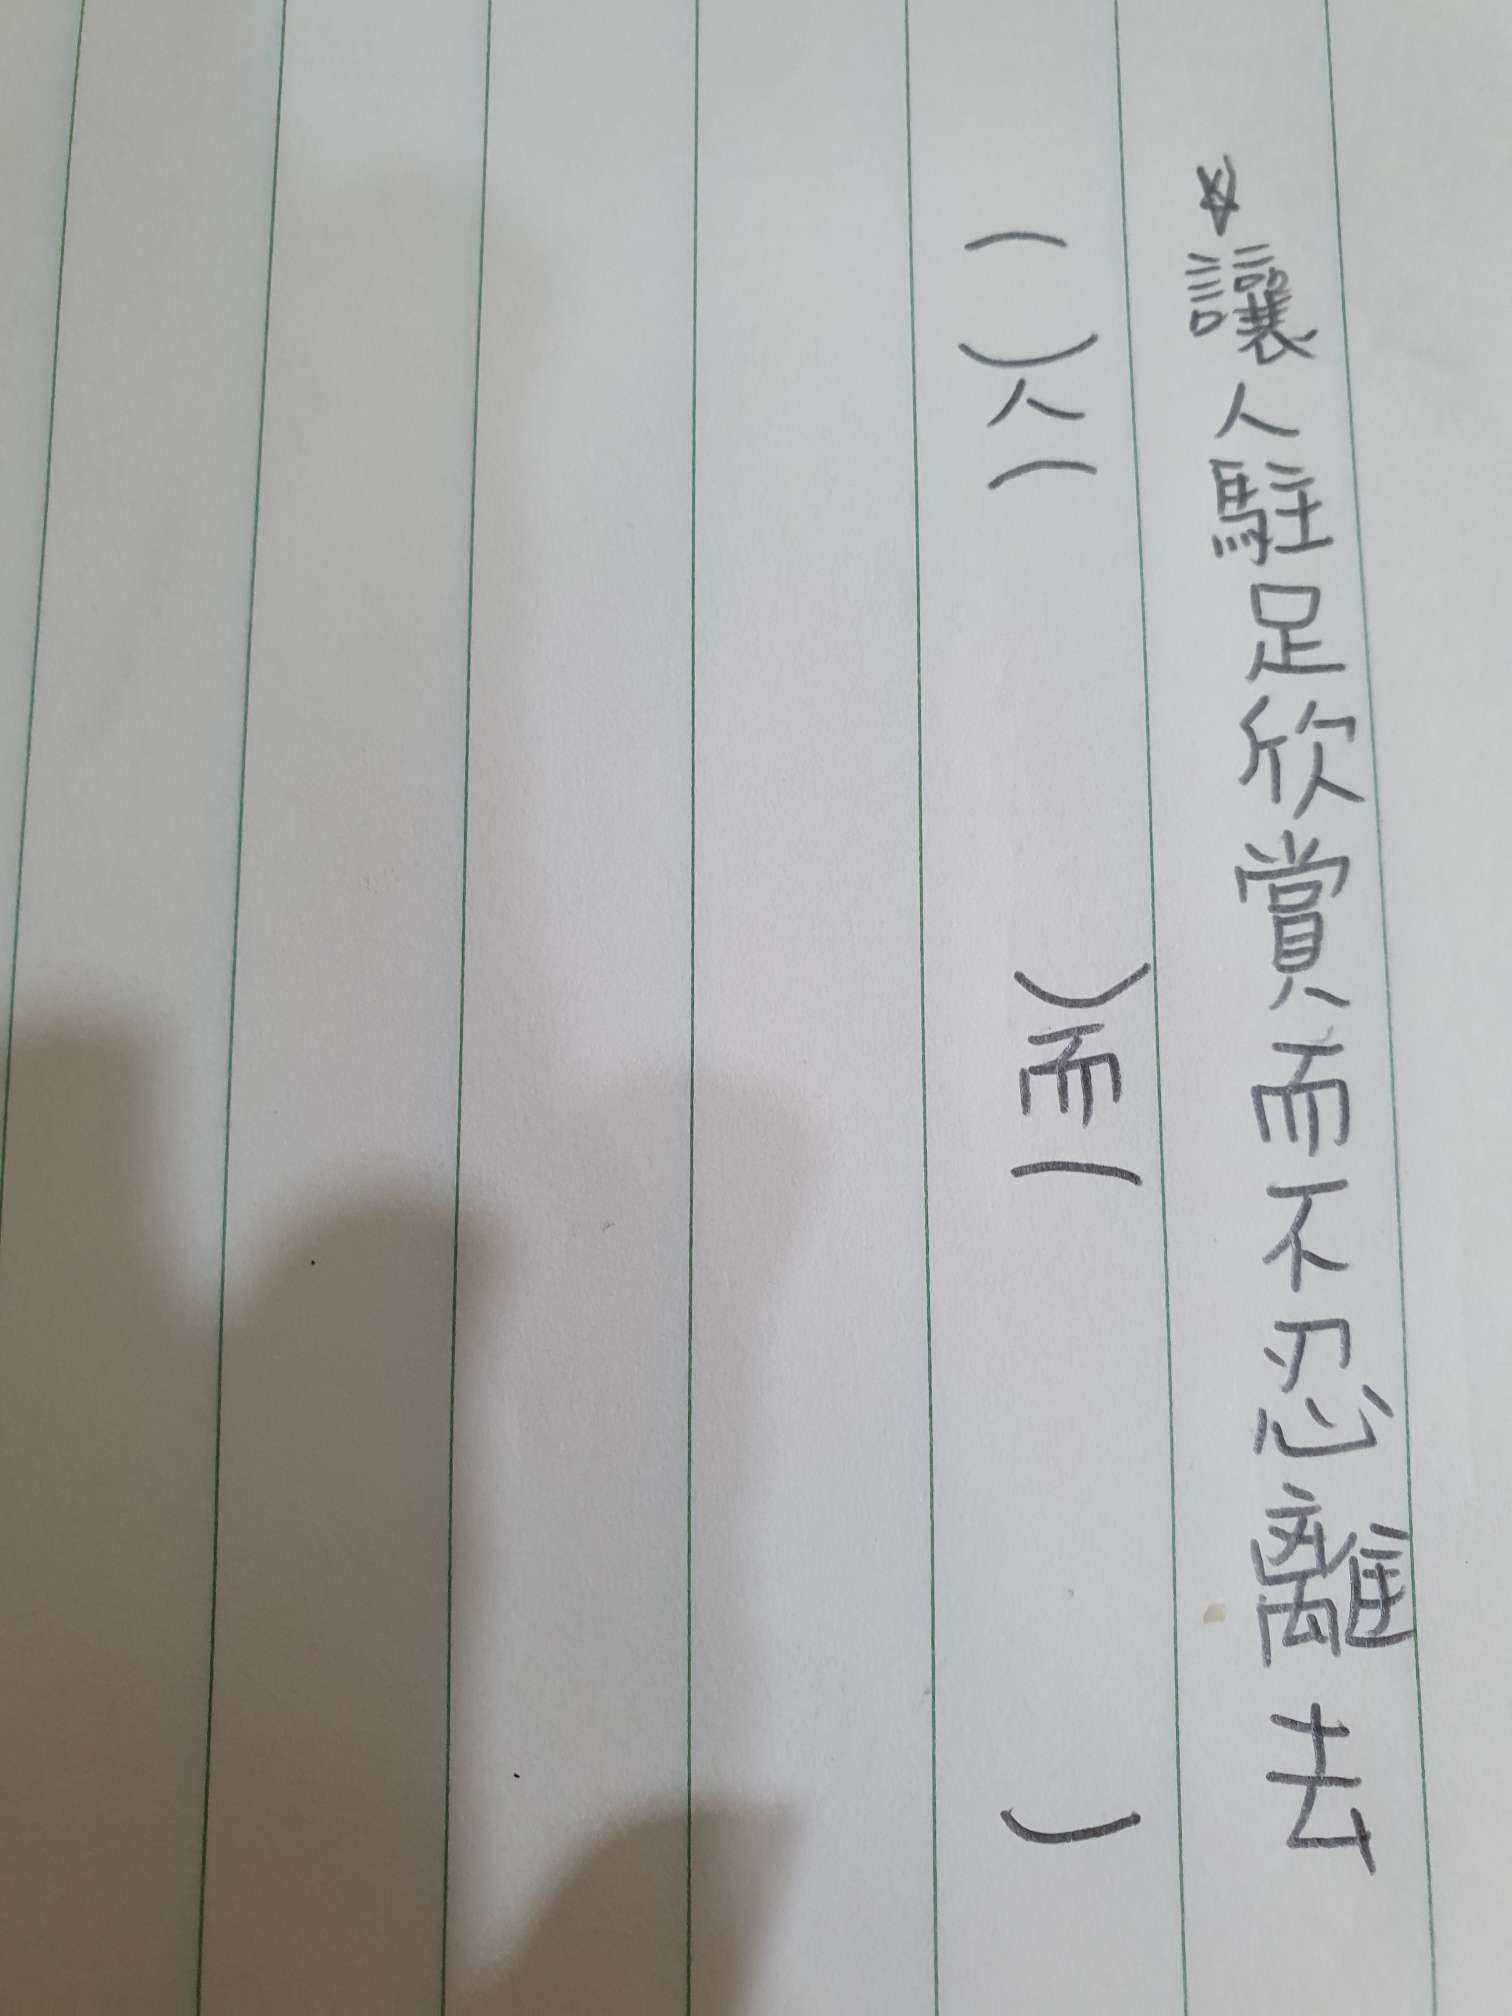 ☆讓人駐足欣賞而不忍離去
（　）人（　　　　）而（　　　　　）